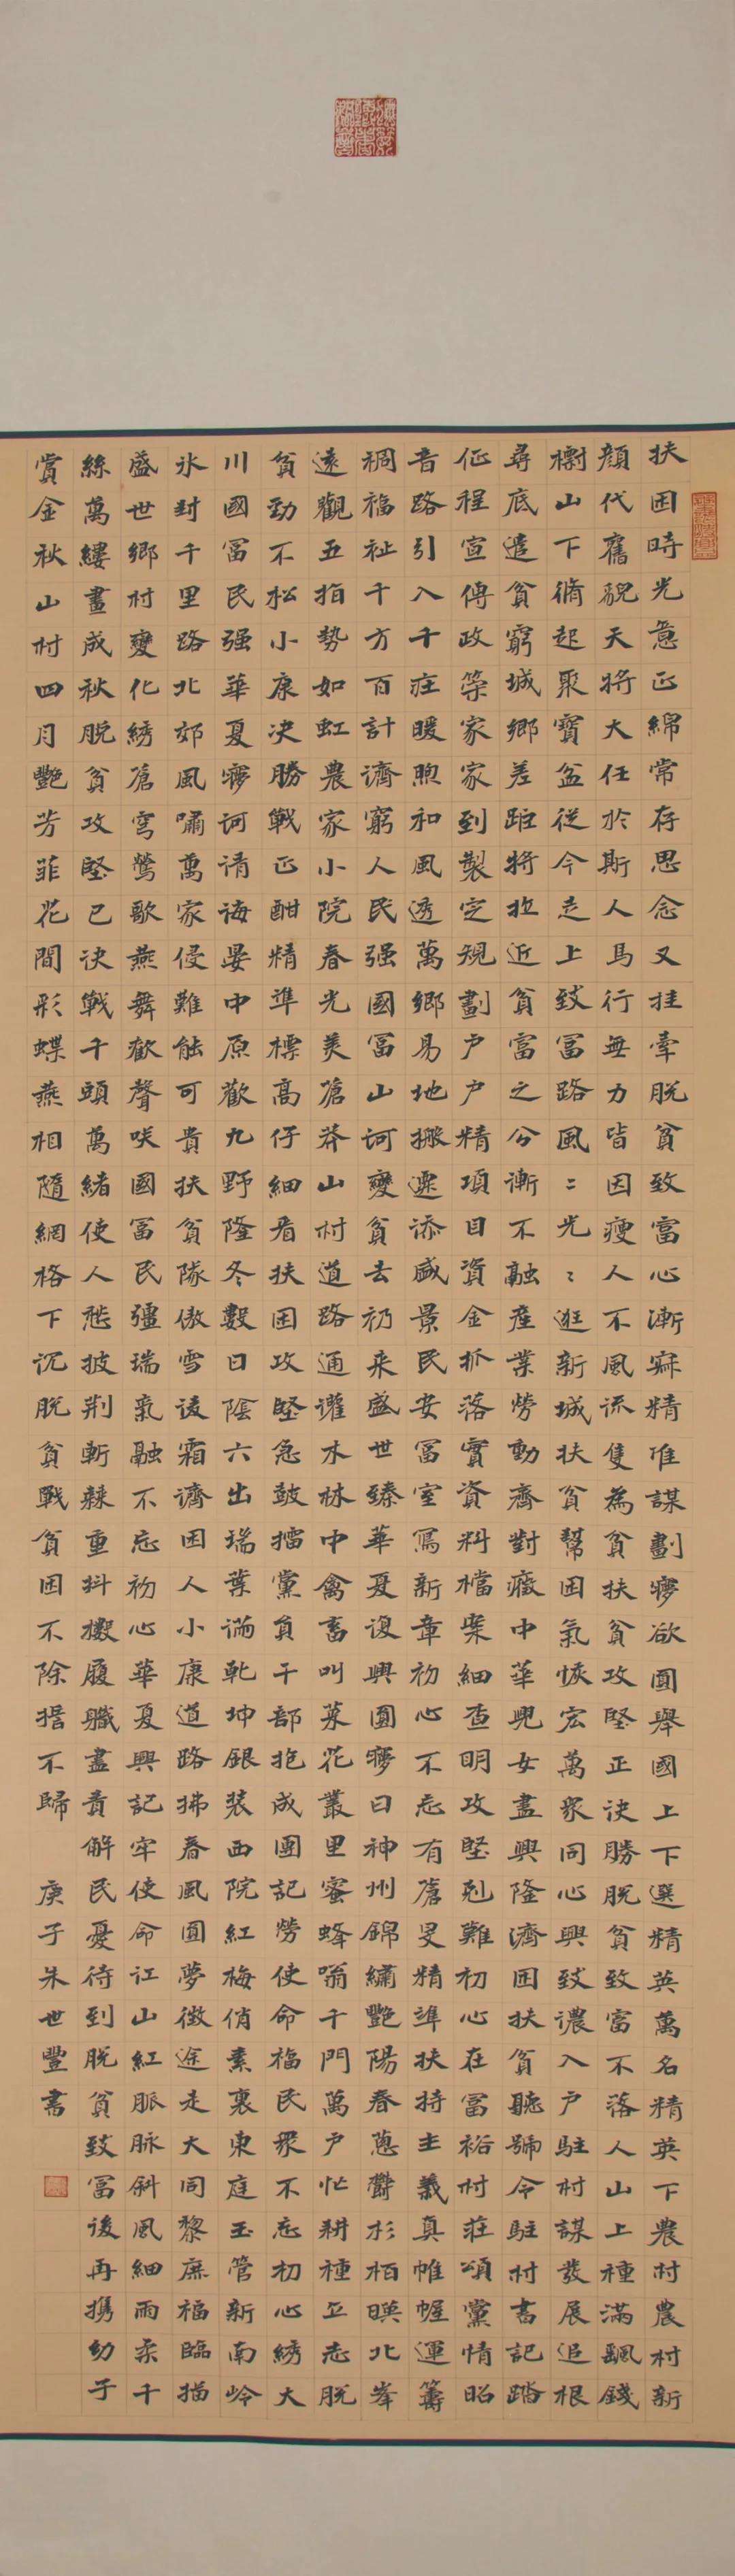 扶困時光意正綿常存思念又挂牽脫貧致富心漸寐精准謀劃夢欲圓舉國上下選精英萬名精英下農村農村新
顏代舊貌天將大任於斯人馬行無力皆因瘦人不風流隻為貧扶貧攻堅正决勝脫貧致富不落人山上種滿飄錢
樹山下脩起聚寶盆從今走上致富路風〻光〻逛新城扶貧幫困氣恢宏萬衆同心興致濃入户駐村謀發展追根
尋底遣貧窮城鄉差距將拉近貧富之分漸不融產業勞動齊對癥中華兒女盡興隆濟困扶貧聽號令駐村書記踏
征程宣傳政策家家到製定規劃户户精項目資金抓落實資料檔案細查明攻堅剋難初心在富裕村莊頌黨情昭
音路引入千莊暖煦和風透萬鄉易地搬遷添盛景民安富室寫新章初心不忘有蒼旻精準扶持主義真帷幄運籌
稠福祉千方百計濟窮人民强國富山河變貧去礽来盛世臻華夏復興圓夢日神州錦繡艷陽春蔥鬱杉栢暎北峯
遠觀五指勢如虹農家小院春光美蒼莽山村道路通灌木林中禽畜叫菜花叢里蜜蜂嗡千門萬户忙耕種立志脫
貧勁不松小康决勝戰正酣精準標高仔細看扶困攻堅急鼓擂黨員干部抱成團記勞使命福民衆不忘初心綉大
川國富民强華夏夢河清海晏中原歡九野隆冬數日陰六出瑞葉滿乾坤銀裝西院紅梅俏素裹東庭玉管新南岭
氷封千里路北郊風嘯萬家侵難能可貴扶貧隊傲雪凌霜濟困人小康道路拂春風圓夢徵途走大同黎庶福臨描
盛世鄉村變化綉蒼穹鶯歌燕舞歡聲咲國富民彊瑞氣融不忘初心華夏興記牢使命江山紅脈脉斜風細雨柔千
絲萬縷畫成秋脫貧攻堅已决戰千頭萬緒使人愁披荆斬棘重抖擻履職盡責解民憂待到脫貧致富後再携幼子
賞金秋山村四月艷芳菲花間彩蝶燕相隨網格下沉脫貧戰貧困不除撸不歸
庚子朱世豐書